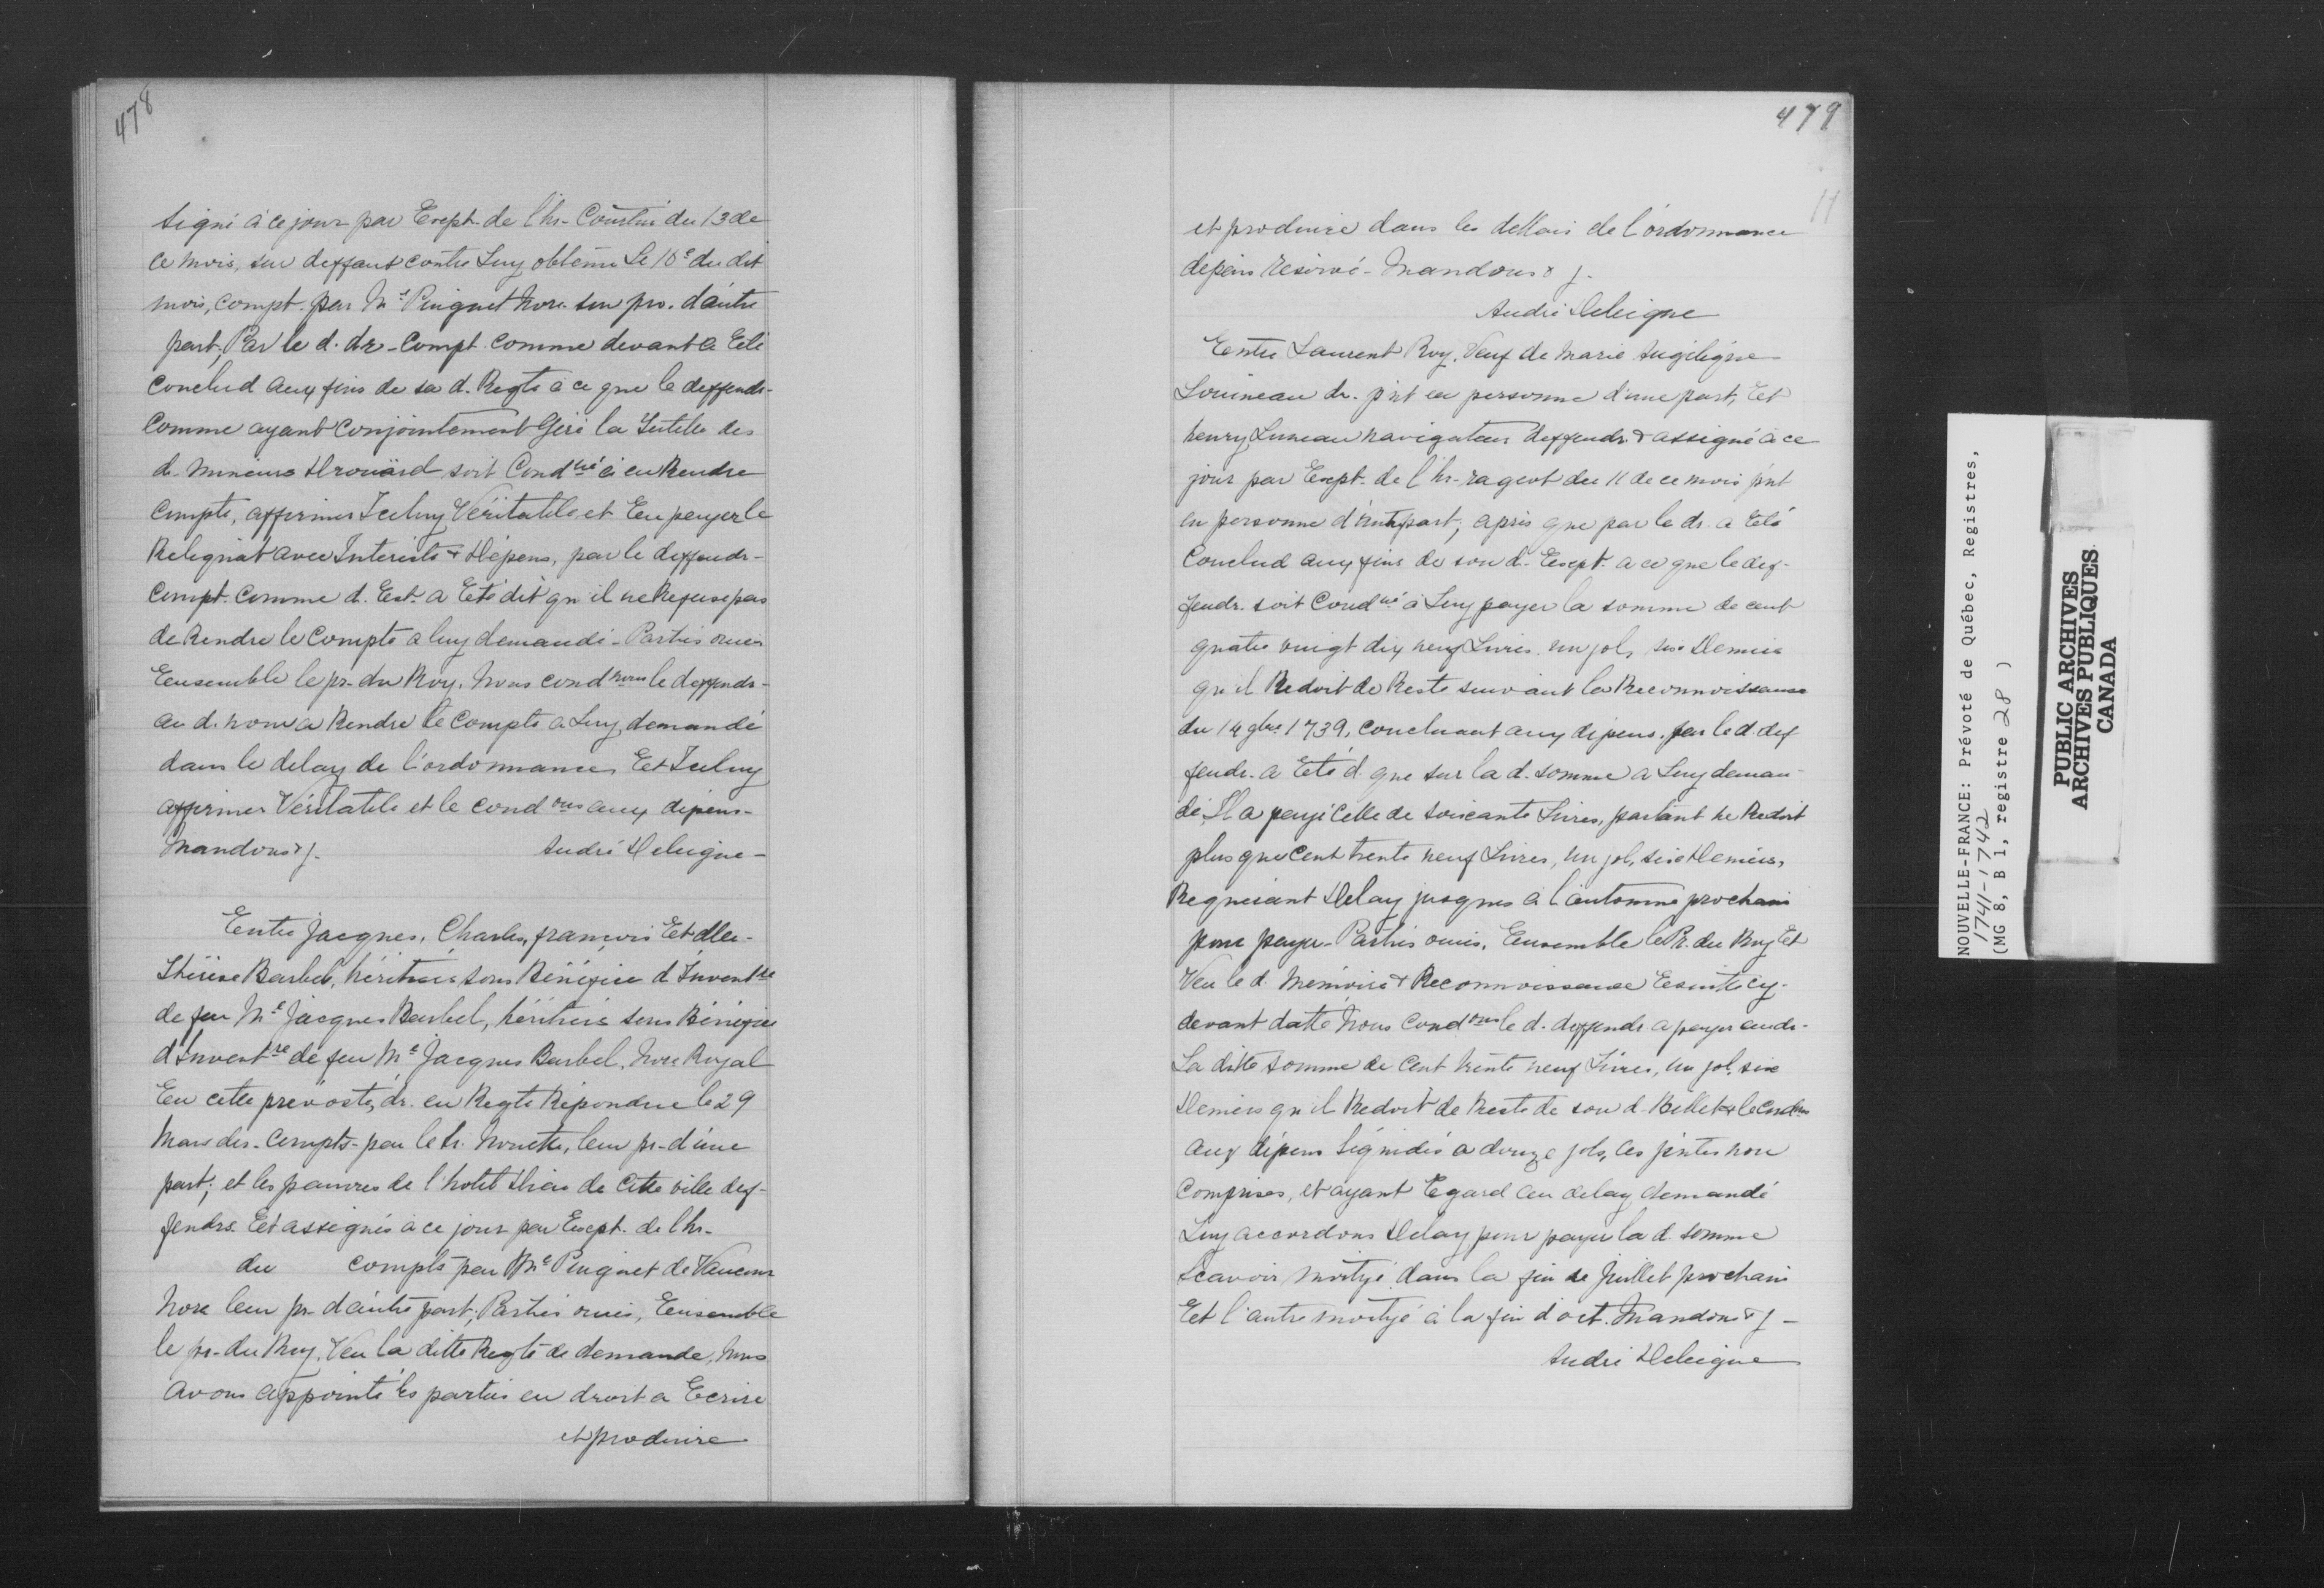 478
signé à ce jour par Exept. de l'hr. Courtin du 13 de
ce mois, sur deffaut contre Luy obtenu Le 10e du dit
mois, compt. par Me Pinguet nore. son pro. d'autre
part, Par le d. dr. compt. comme devant a Eté
Conclud aux fins de sa d. Reqte à ce que le deffendr.
Comme ayant Conjointement Géré la Tutelle des
d. mineurs Drouard soit Condné à en Rendre
Compte, affirmer Iceluy Véritable et En payer le
Reliquat avec Interists & Dépens, par le deffendr.
Compt. Comme d. Est. a Eté dit qu'il ne Refuse pas
de Rendre le Compte a luy demandé. Parties ouies
Ensemble le pr. du Roy. Nous condnons le deffendr.
au d. nom a Rendre le Compte a Luy demandé
dans le delay de l'ordonnance Et Iceluy
affirmer Véritable et le condons aux dépens.
Mandons & j. André Deleigne

Entre Jacques, Charles, françois Et dlle.
Thérèse Barbel, héritiers sous Bénéfice d'Inventre
de feu Me Jacques Barbel, héritiers sous Bénéfice
d'Inventre de feu Me Jacques Barbel, Nore Royal
En cette prévosté, dr. en Reqte Répondue le 29
Mars der. Compts. par le Sr. Nouette, leur pr. d'une
part; et les pauvres de l'hotel Dieu de Cette ville def-
fendrs. Et assignés à ce jour par Exept. de l'hr.
du compts par Me Pinguet de Vaucour
Nore leur pr. d'autre part, Parties ouies, Ensemble
le pr. du Roy, Veu la ditte Reqte de demande, Nous
avons appointé les parties en droit a Ecrire
et produire
479
11
et produire dans les dellais de l'ordonnance
depens reservé. Mandons & j.
André Deleigne
Entre Laurent Roy, Veuf de Marie Angélique
Louineau dr. p'nt en personne d'une part, Et
henry Luneau navigateur deffendr. & assigné à ce
jour par Exept. de l'hr. rageot du 11 de ce mois p'nt
en personne d'aut. part, après que par le dr. a Eté
Conclud aux fins de son d. Exept. a ce que le def-
fendr. soit Condné à Luy payer la somme de cent
quatre vingt dix neuf Livres un sol, six Deniers
qu'il Redoit de Reste suivant la Reconnoissance
du 14 9bre 1739, concluant aux dépens. par le d. def
fendr. a Eté d. que sur la d. somme a Luy deman-
dé, Il a payé Celle de soixante Livres, partant ne Redoit
plus que Cent trente neuf Livres, un sol, six Deniers,
Requerant Delay jusques à l'automne prochain
pour payer. Parties ouies, Ensemble le Pr. du Roy Et
Veu le d. Mémoire & Reconnoissance Ensuite cy-
devant datté Nous Condons le d. deffendr. a payer au dr.
La ditte somme de Cent trente neuf Livres, un sol, six
Deniers qu'il Redoit de Reste de son d. Billet & le Condons
aux dépens liquidés a douze sols, les p'ntes non
Comprises, et ayant Egard au delay demandé
Luy accordons Delay pour payer la d. somme
Scavoir moityé dans la fin de Juillet prochain
Et l'autre moityé à la fin d'oct. Mandons & j.
André Deleigne
NOUVELLE-FRANCE: Prévoté de Québec, Registres,
1741-1742
(MG 8, B 1, registre 28 )
PUBLIC ARCHIVES
ARCHIVES PUBLIQUES
CANADA